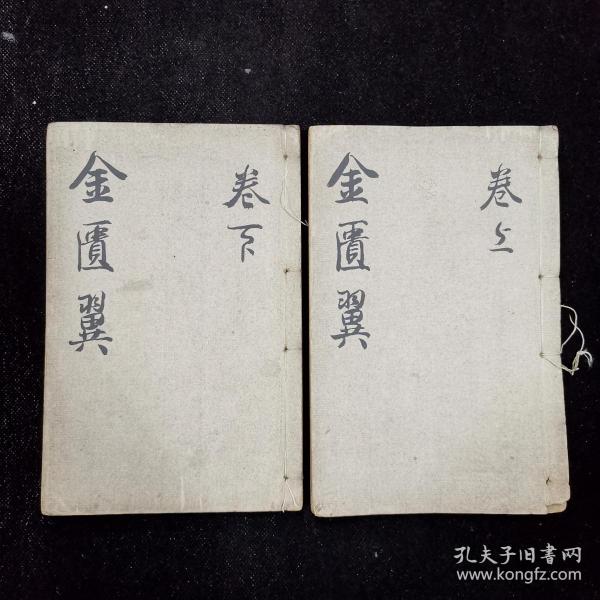 卷上
金匱翼
卷下
金匱翼
孔夫子旧書网
www.kongfz.com